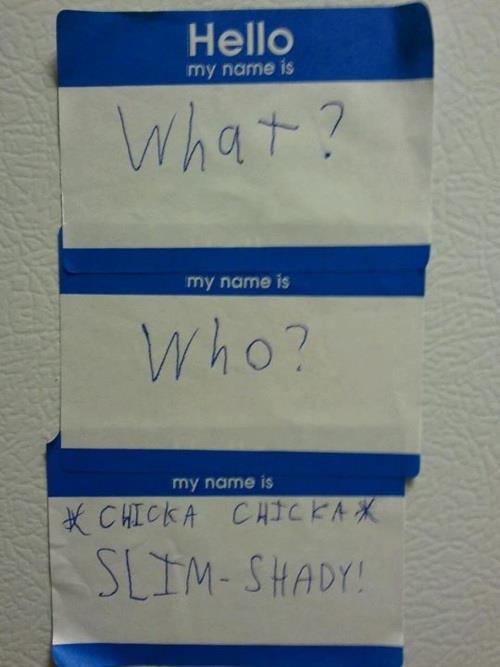 Hello
my name is
What?
my name is
Who?
my name is
*CHICKA CHICKA*
SLIM-SHADY!